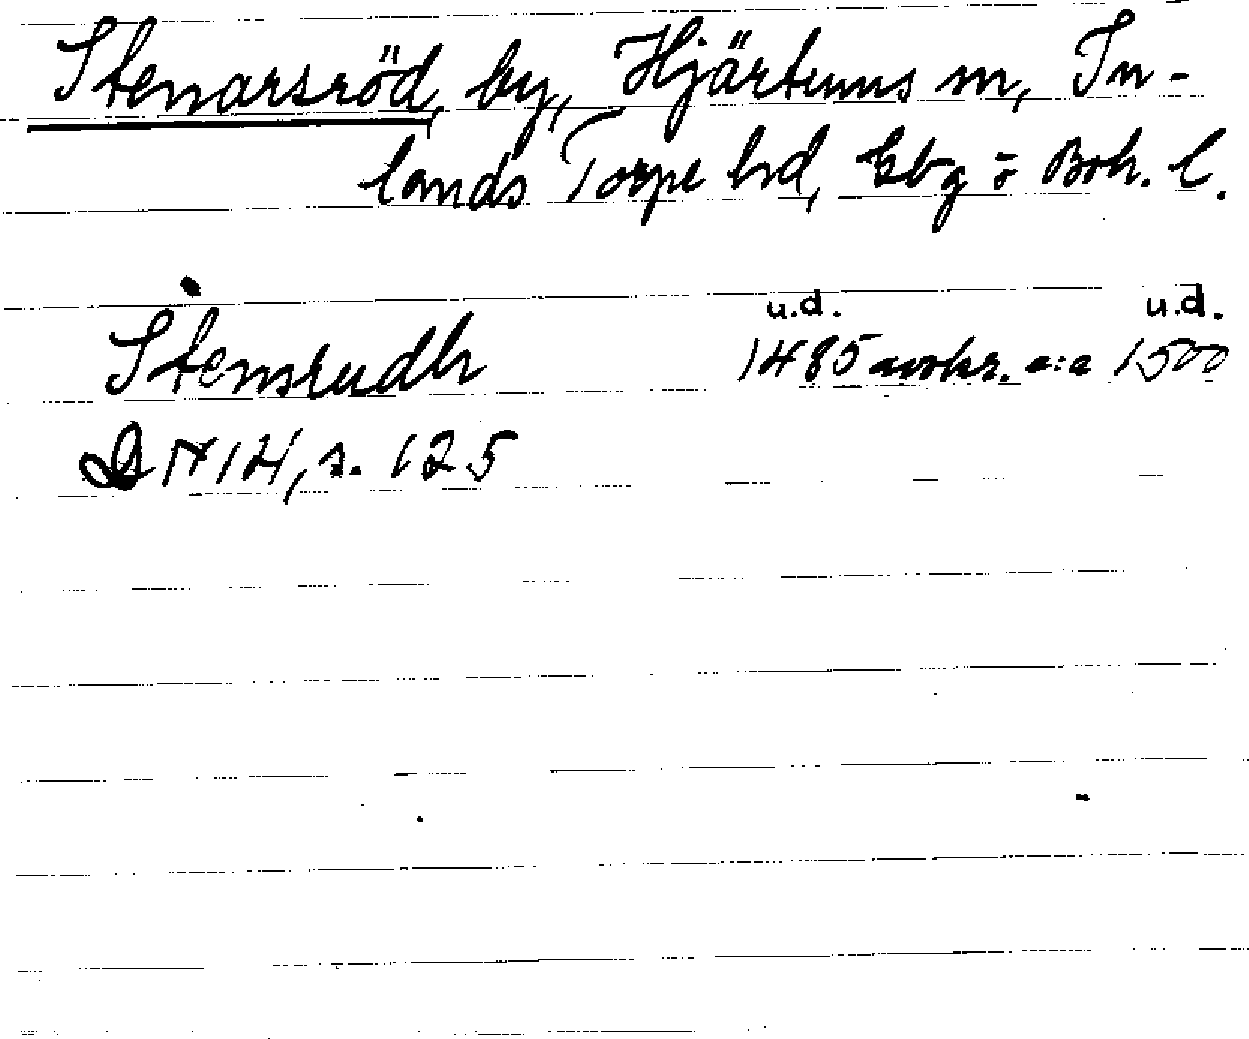 Stenarsröd, by, Hjärtums sn, In-
lands Torpe hd, Gbg o Boh. l.
u.d. u.d.
Stensrudh 1485 avskr. c:a 1500
DN 14, s. 125